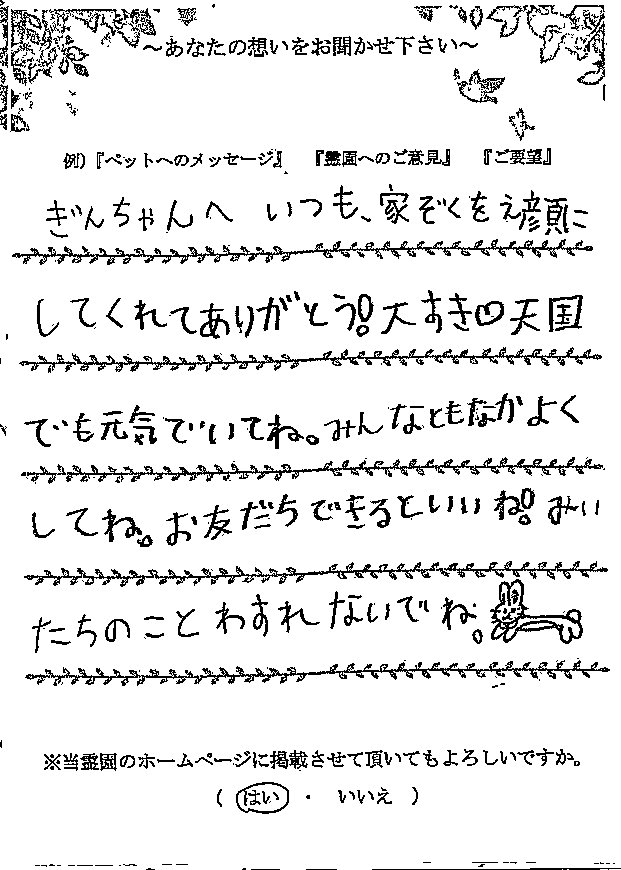 ~あなたの想いをお聞かせ下さい~
例)『ペットへのメッセージ』 『霊園へのご意見』 『ご要望』
ぎんちゃんへ いつも、家ぞくをえ顔に
してくれてありがとう!大すき 天国
でも元気でいてね。みんなともなかよく
してね。お友だちできるといいね!みぃ
たちのことわすれないでね。
※当霊園のホームページに掲載させて頂いてもよろしいですか。
( はい ・ いいえ )